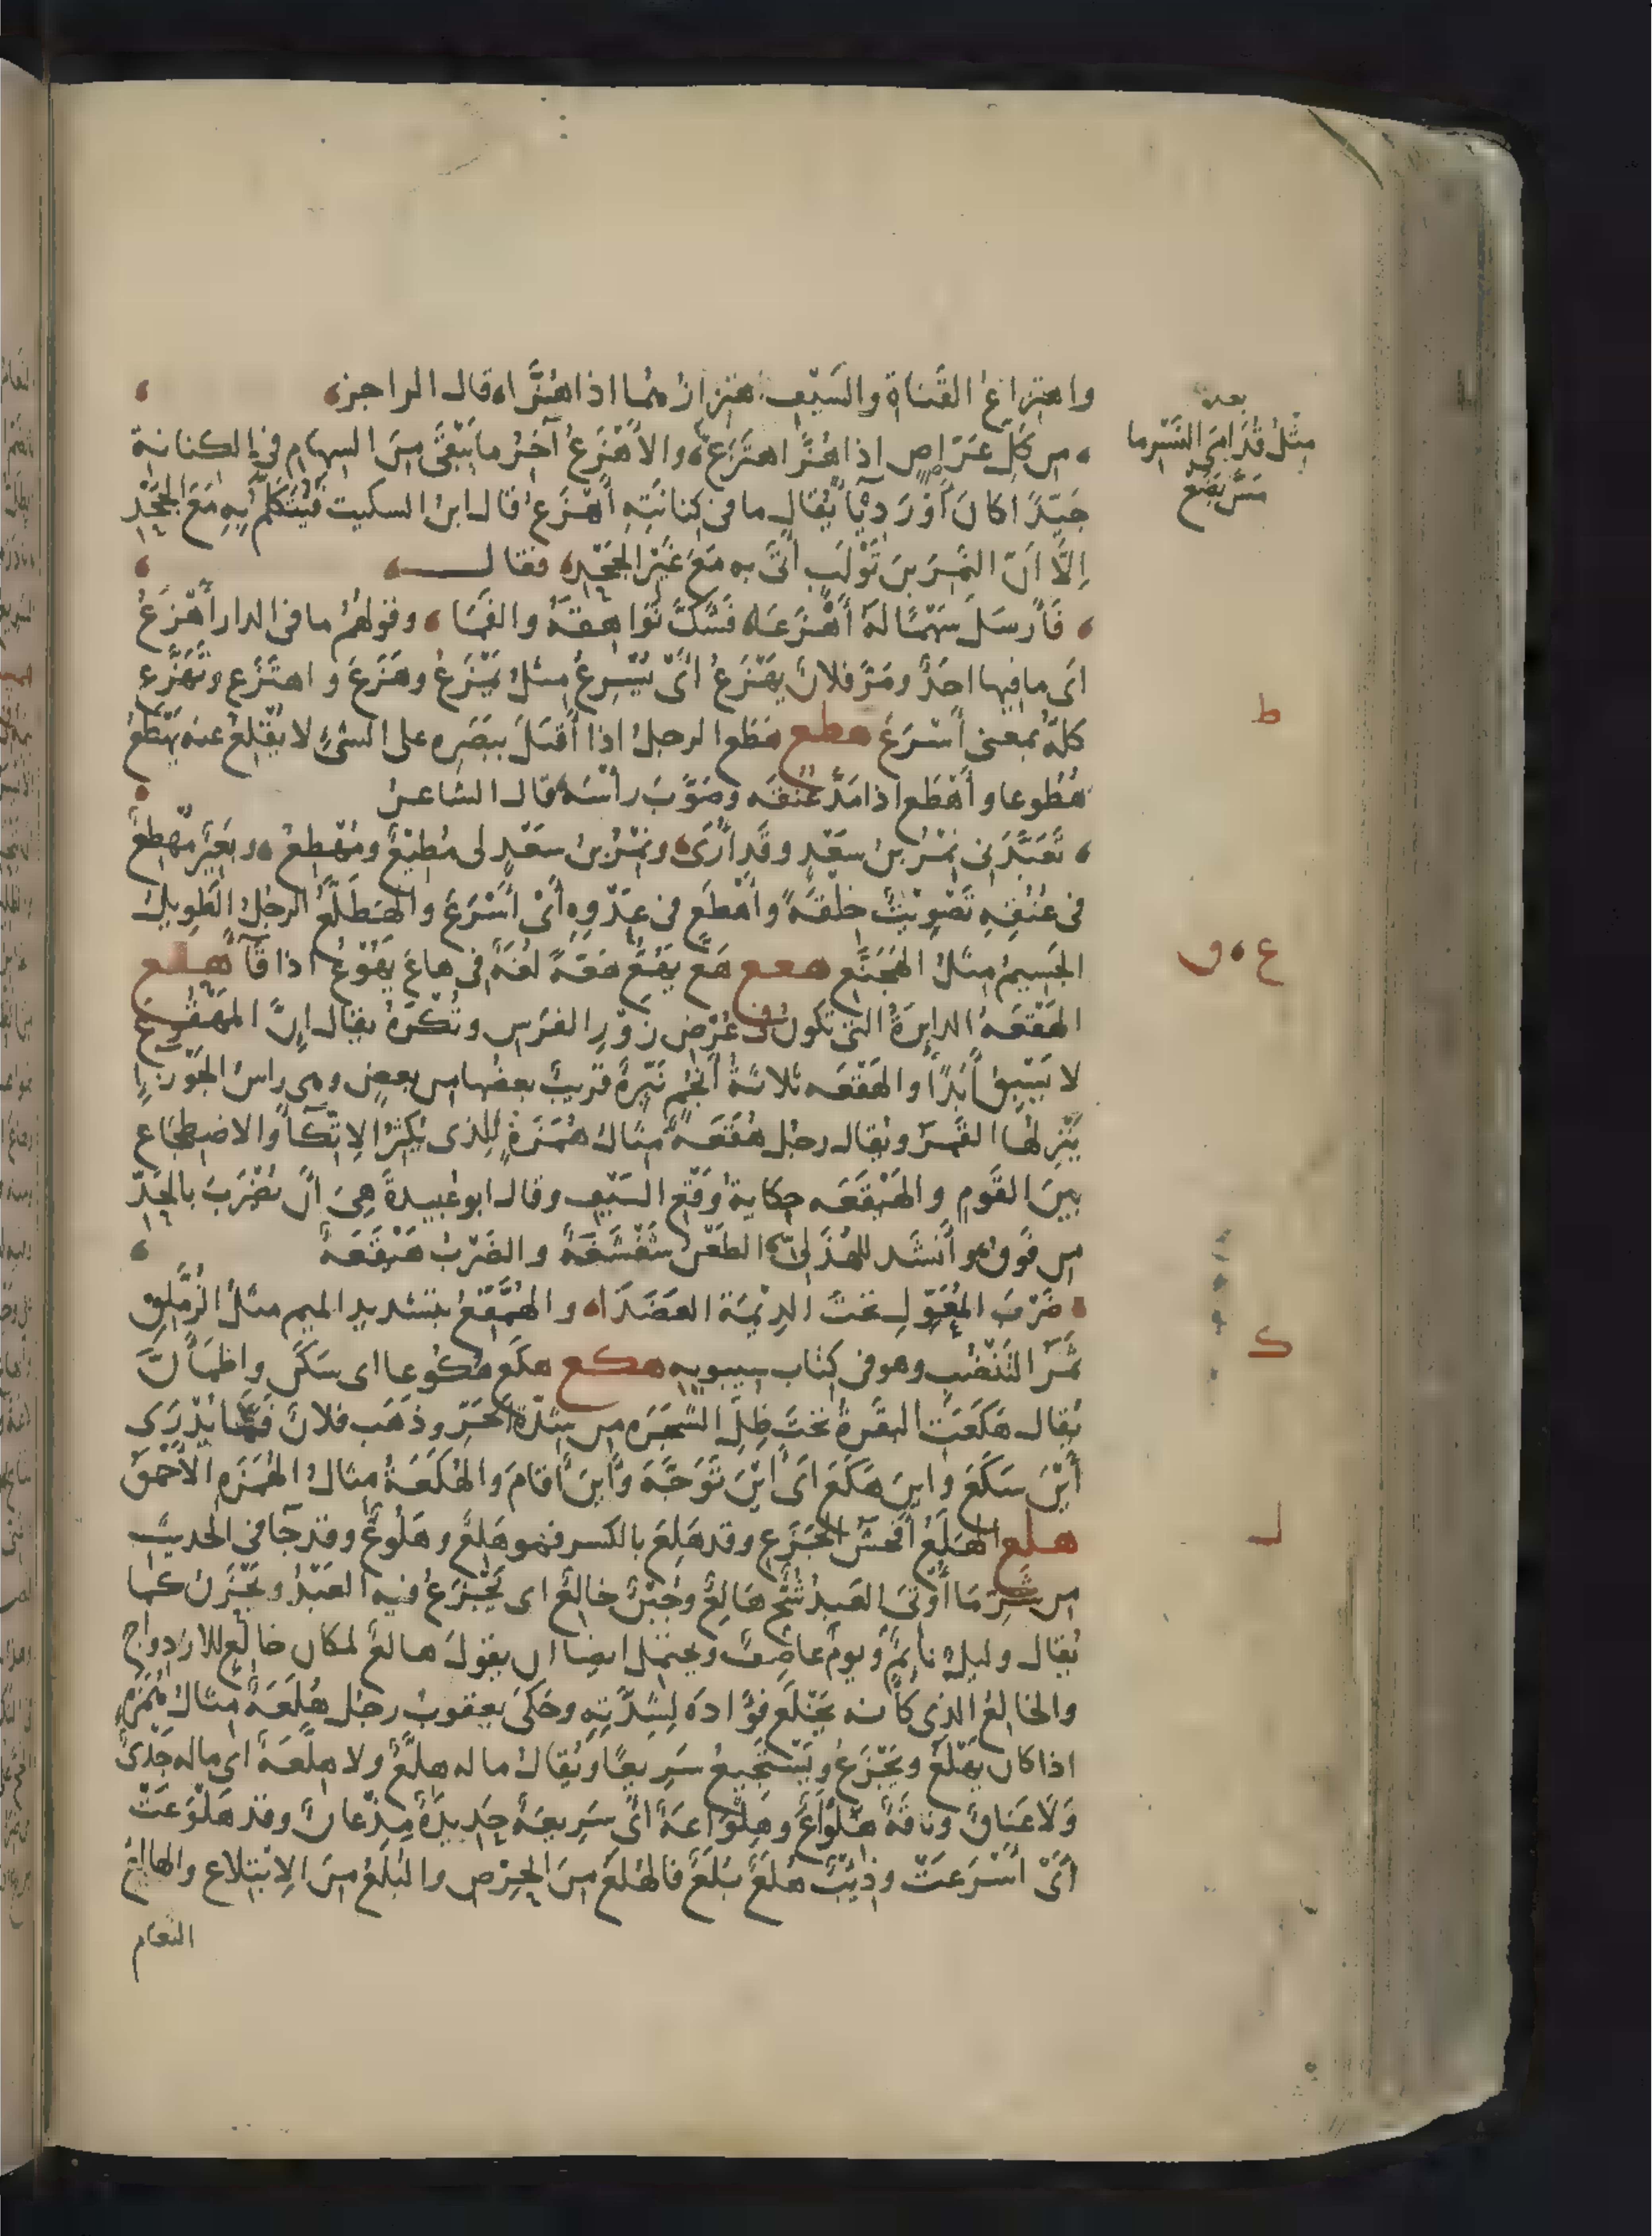 واهتزاعُ القَناةِ والسَيْفِ اهتزازُهُما اذا هُزَّا، قال الراجز،
، من كُلِّ عَرَّاصٍ اذا هُزَّ اهتَزَعْ، والأهْزَعُ آخَرُ ما يَبْقَى مِنَ السهامِ في الكنانة
جَيّدًا كان أوْ رَديًّا يُقال ما في كِنانَتِه أَهْزَعُ قال ابن السكيت فيُتَكَلَّمُ بِهِ مَعَ الجَحْدِ
إلّا أنّ النَمِرَ بنَ تَوْلَبٍ أتَى به مَعَ غَيْرِ الجَحْدِ، فقال
، فَأَرسَلَ سَهْمًا لَهُ أَهْزَعَا، فَشَكَّ نَوَاهِقَهُ والفَمَا، وقولهُم ما في الدار أهْزَعُ
اى ما فيها احَدٌ ومَرَّ فلانٌ يَهْزَعُ أىْ يُسْرِعُ مثلُ يَمْزَعُ وهَزَعَ واهتَزَع وتَهَزَّع
كلّهُ بمعنى أَسْرَعَ هطع هَطَع الرجلُ اذا أَقبَلَ ببَصَرِه على الشيءِ لا يُقْلِعُ عنه يَهْطَعُ
هُطُوعا وأَهْطَع اذا مَدَّ عُنقَه وصَوَّبَ رأْسَهُ قال الشاعرُ
، تَعَبَّدَنى نِمْرُ بنُ سَعْدٍ وقَد أرَى، ونِمْرُ بنُ سَعْدٍ لى مُطِيْعٌ ومُهْطِعُ، وبَعِيْرٌ مُهْطِعٌ
فى عُنُقِهِ تَصْوِيْبٌ خِلْقَةً وأَهْطَعَ فى عَدْوِهِ أَىْ أَسْرَعَ والهَطَلَّعُ الرجلُ الطَويلُ
الجَسيمُ مثلُ الهَجَنَّع هعع هَعَّ يَهُعُّ هَعَّةً لُغَةٌ فى هاعَ يَهُوْعُ اذا قَآءَ هقع
الهَقْعَهُ الدايرَةُ التى تكون فى عُرْضِ زَوْرِ الفرَس وتُكْرَهُ يقال إنَّ المَهْقُوعَ
لا يَسْبِقُ أَبَدًا والهَقْعَه ثلاثَةُ أَنْجُمٍ نَيِّرَةٌ قَريبٌ بعضُها من بعضٍ وهى راسُ الجَوْزاءِ
يَنْزِلُها القَمَرُ ويُقال رجل هُقَعَةٌ مثالُ هُمَزَةٍ للذى يُكثِرُ الاتّكآءَ والاضطجاع
بينَ القَومِ والهَيْقَعَه حِكايةُ وَقْعِ السَيْفِ وقال ابو عُبيدةَ هِىَ أنْ تَضْرِبَ بالحَدِّ
من فَوقُ وأَنشَد للهُذَلىّ الطَعْنُ شَغْشَغَةٌ والضَرْبُ هَيْقَعَةٌ
، ضَرْبَ المُعَوِّلِ تحتَ الدِيْمَةِ العَضَدَا، والهُمَّقِعُ بتشديد الميم مثلُ الزُمَّلِق
ثَمَرُ التَنْضُبِ وهو فى كتاب سيبويه هكع هكَعَ هُكُوعا اى سَكَنَ واطْمَأَنَّ
يُقال هَكَعَتِ البقَرةُ تحتَ ظِلِّ الشَجَرَه من شِدّةِ الحَرِّ وذهَب فلانٌ فَما يُدْرَى
أَيْنَ سَكَعَ وأينَ هَكَعَ اى أيْنَ تَوَجَّهَ وأينَ أقامَ والهُكَعَةُ مثالُ الهُمَزَه الأَحْمَقُ
هلع الهَلَعُ أفحَشُ الجَزَعِ وقد هَلِعَ بالكسر فهو هَلِعٌ وهَلُوعٌ وقد جآ فى الحديث
من شَرِّ مَا أُوْتِىَ العَبدُ شُحٌّ هَالِعٌ وجُبْنٌ خالِعٌ اى يَجْزَعُ فيه العَبْدُ ويَحْزَنُ كما
يُقال وليلٌ نائِمٌ ويومٌ عاصِفٌ ويحتمل ايضا ان يقولَ هالعٌ لمكان خالع للازدواج
والخالعُ الذى كأنه يَخْلَع فُؤادَه لِشِدَّتِهِ وحَكَى يعقوبُ رجُلٌ هُلَعَةٌ مثالُ هُمَزَهٍ
اذا كان يَهْلَع ويَجْزَعُ ويَسْتَجيعُ سَريعًا ويُقالُ ما له هِلَّعٌ ولا هِلَّعَةٌ اى ماله جَدْىٌ
وَلَا عَناقٌ وناقَةٌ هِلْوَاعٌ وهِلْوَاعَةٌ أى سَرِيعَةٌ حَدِيدَةٌ مِذْعانٌ وقد هَلْوَعَتْ
أَىْ أَسْرَعَتْ وذِئْبٌ هُلَعٌ بُلَعٌ فالهُلَعُ مِنَ الحِرْصِ والبُلَعُ مِنَ الابْتِلاع والهالِعُ
النعام
بعده
مِثْلُ قُدَامَى النَسْرِ ما
مَسَّ بَضَعْ
ط
ع ، ق
ك
ل